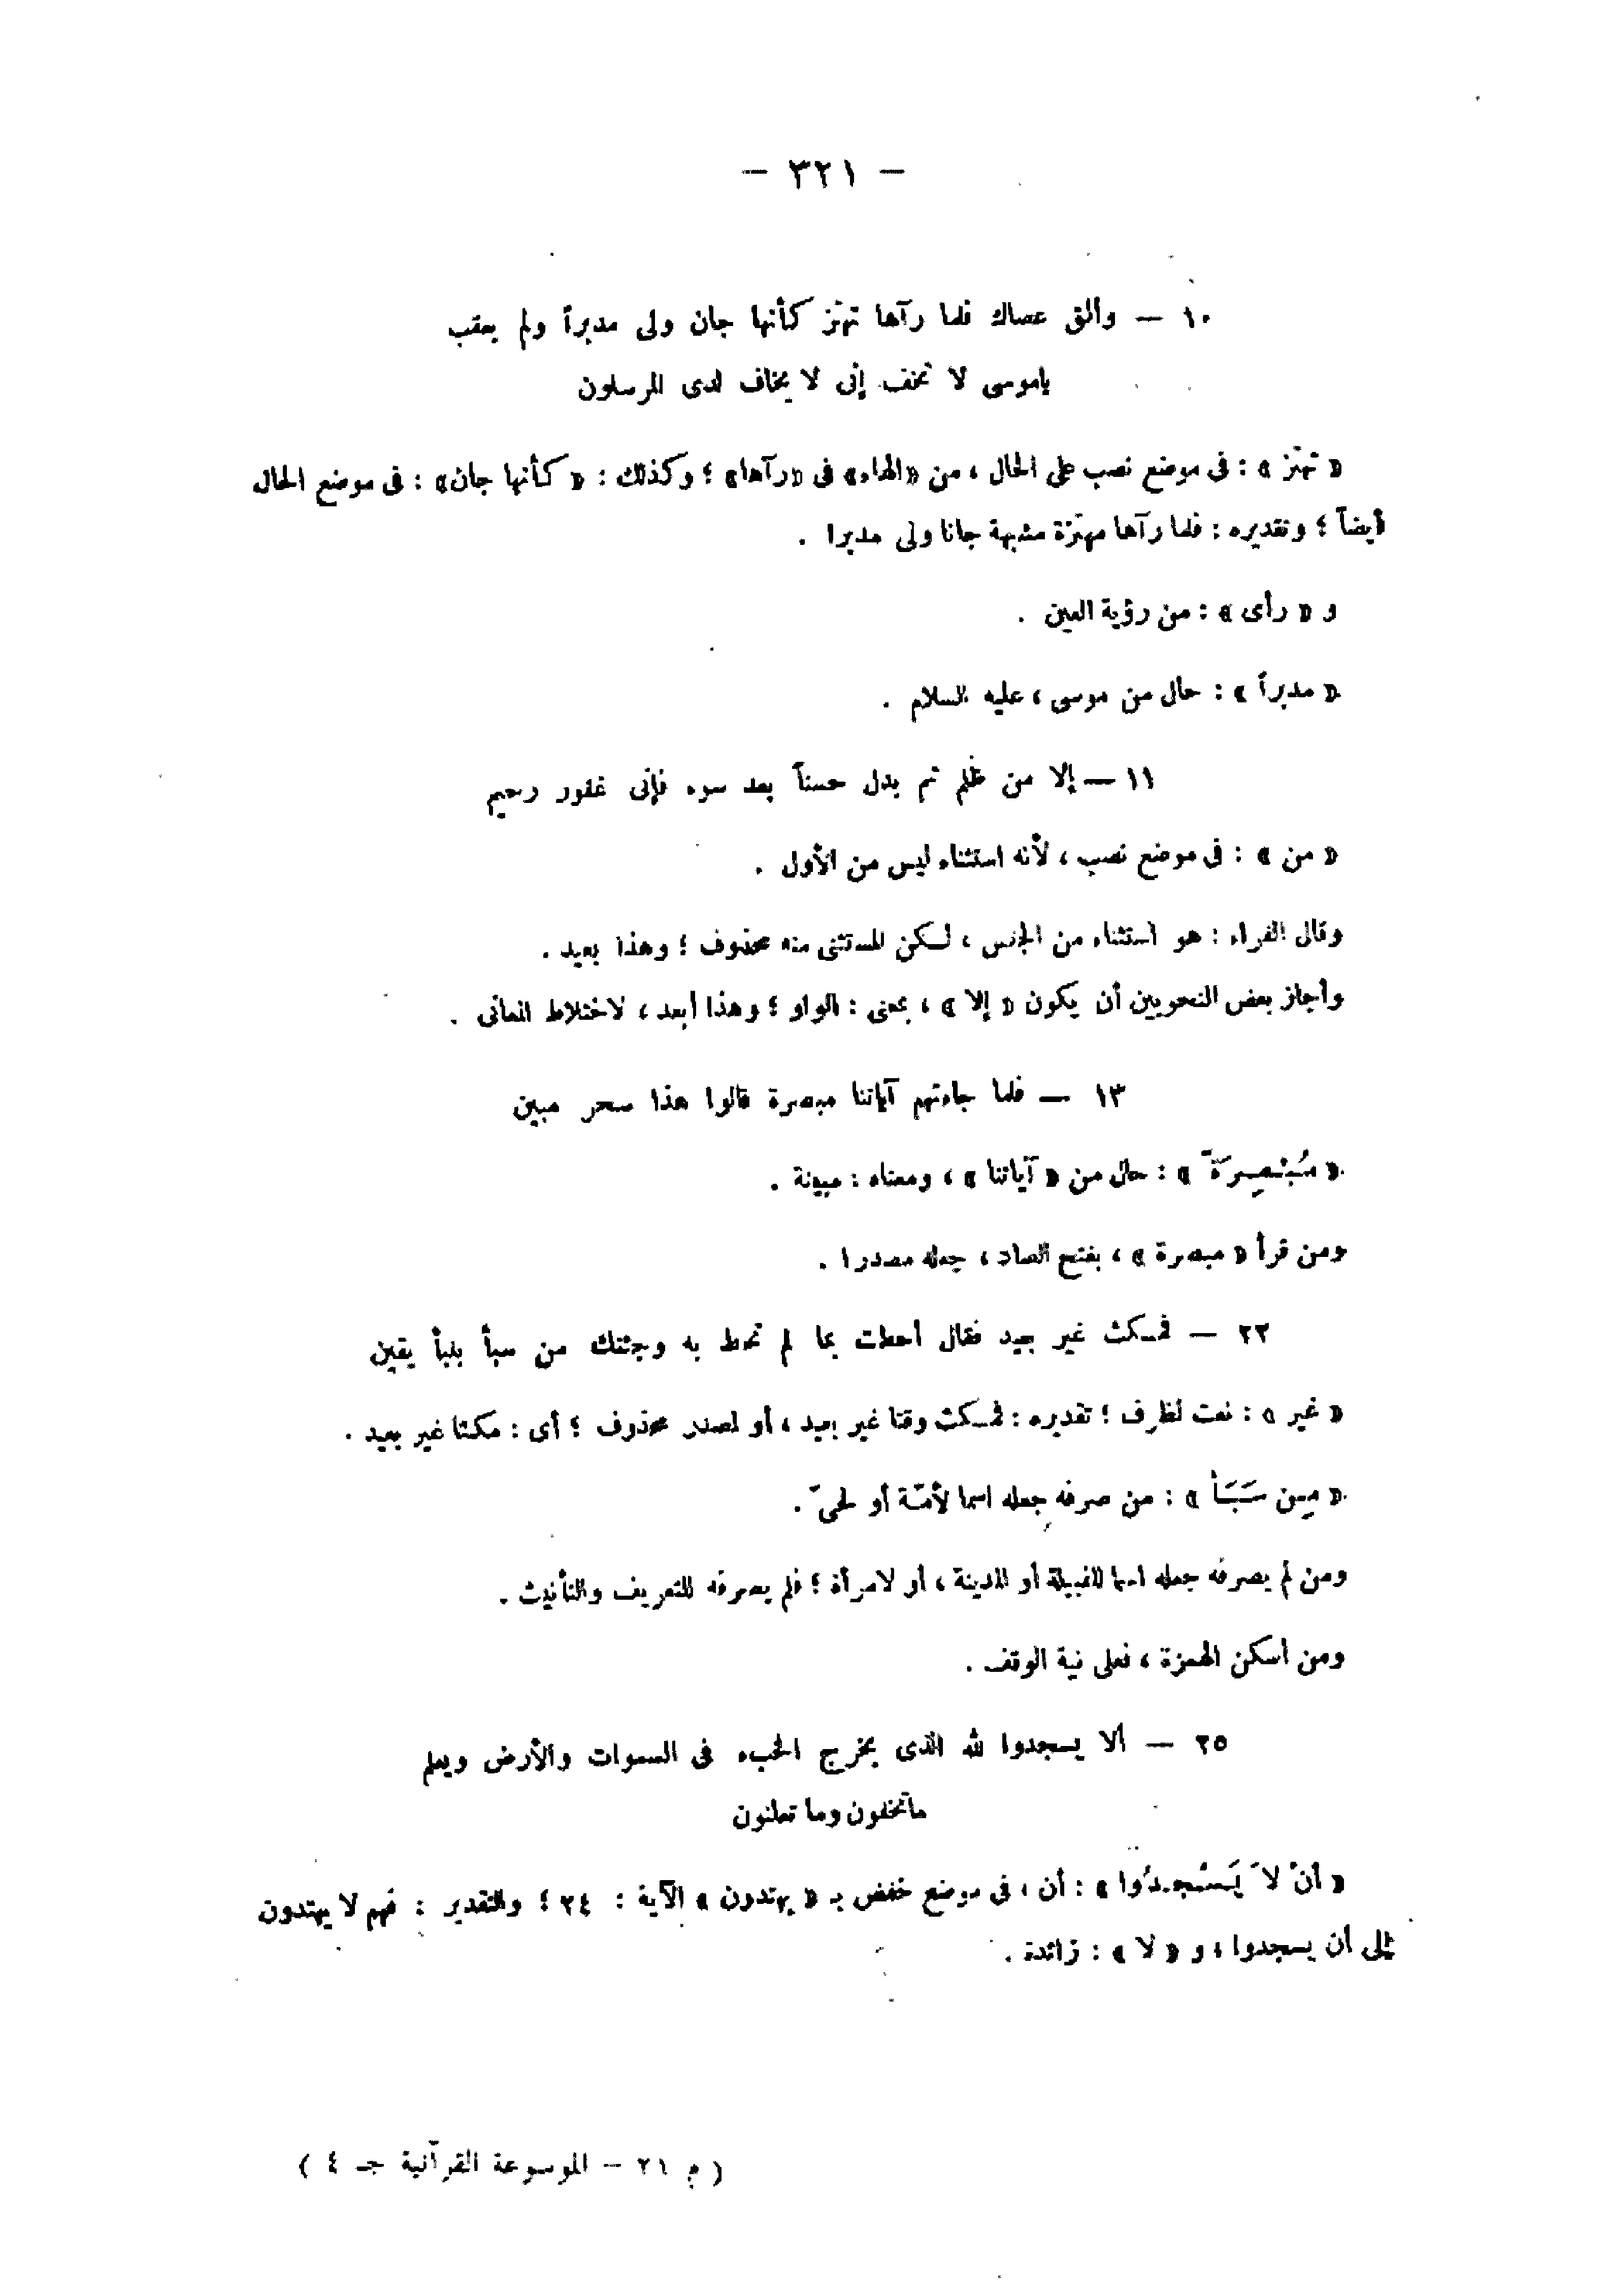 — ٣٢١ —
١٠ — وألق عصاك فلما رآها تهتز كأنها جان ولى مدبراً ولم يعقب
ياموسى لا تخف إنى لا يخاف لدى المرسلون
« تهتز » : فى موضع نصب على الحال ، من «الهاء» فى «رآها» ؛ وكذلك : « كأنها جان» : فى موضع الحال
أيضاً ؛ وتقديره : فلما رآها مهتزة مشبهة جانا ولى مدبرا .
و « رأى » : من رؤية العين .
« مدبراً » : حال من موسى ، عليه السلام .
١١ — إلا من ظلم ثم بدل حسناً بعد سوء فإنى غفور رحيم
« من » : فى موضع نصب ، لأنه استثناء ليس من الأول .
وقال الفراء : هو استثناء من الجنس ، لكن المستثنى منه محذوف ؛ وهذا بعيد .
وأجاز بعض النحويين أن يكون « إلا » ، بمعنى : الواو ؛ وهذا أبعد ، لاختلاط المعانى .
١٣ — فلما جاءتهم آياتنا مبصرة قالوا هذا سحر مبين
« مُبْصِرَةً » : حال من « آياتنا » ، ومعناه : مبينة .
ومن قرأ « مبصرة » ، بفتح الصاد ، جعله مصدرا .
٢٢ — فمكث غير بعيد فقال أحطت بما لم تحط به وجئتك من سبأ بنبأ يقين
« غير » : نعت لظرف ؛ تقديره : فمكث وقتا غير بعيد ، أو لمصدر محذوف ؛ أى : مكثا غير بعيد .
« مِن سَبَأ » : من صرفه جعله اسما لأمّة أو لحىّ .
ومن لم يصرفه جعله اسما للقبيلة أو المدينة ، أو لامرأة ؛ فلم يصرفه للتعريف والتأنيث .
ومن أسكن الهمزة ، فعلى نية الوقف .
٢٥ — ألا يسجدوا لله الذى يخرج الخبء فى السموات والأرض ويعلم
ماتخفون وما تعلنون
« أنْ لاَ يَسْجدُوا » : أن ، فى موضع خفض بـ « يهتدون » الآية : ٢٤ ؛ والتقدير : فهم لا يهتدون
إلى أن يسجدوا ، و « لا » : زائدة .
( م ٢١ – الموسوعة القرآنية جـ ٤ )